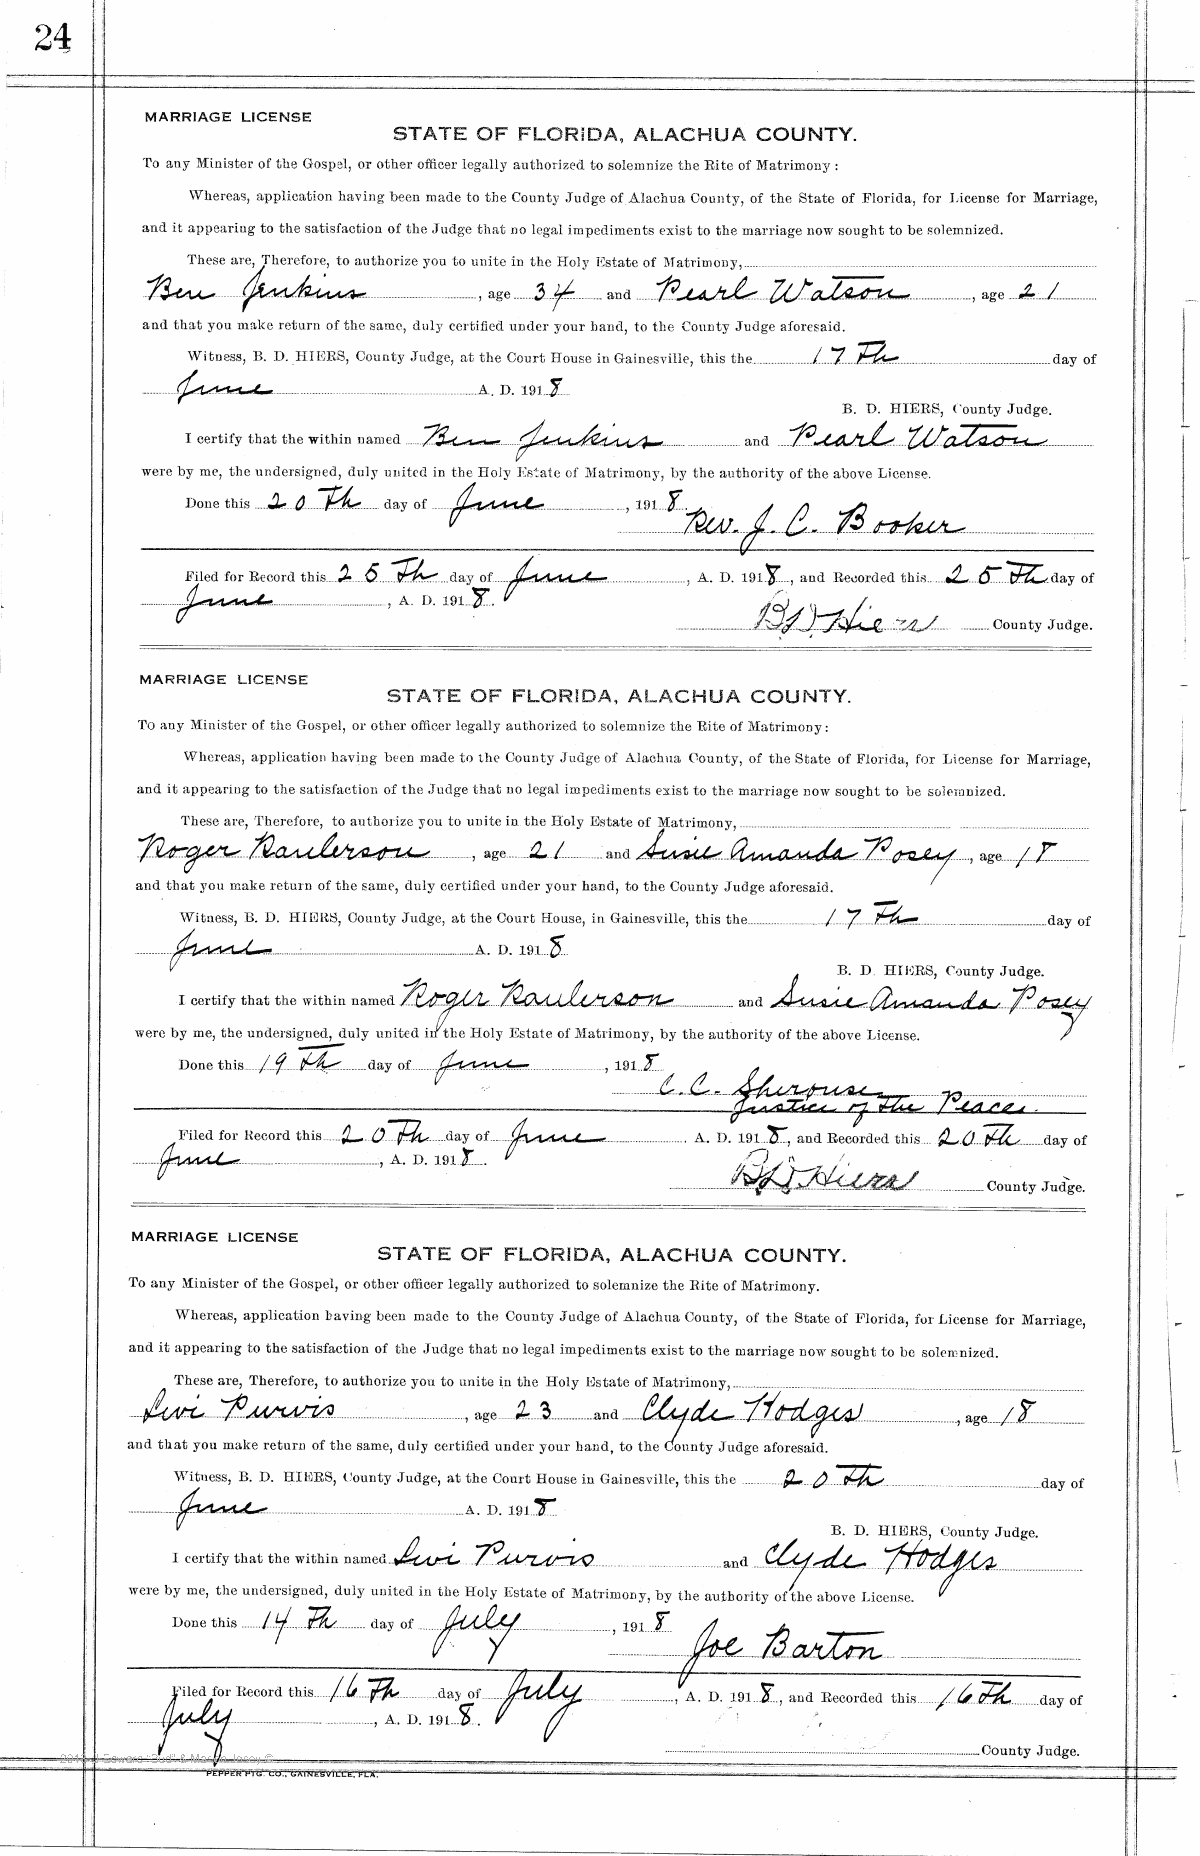 24
MARRIAGE LICENSE
STATE OF FLORIDA, ALACHUA COUNTY.
To any Minister of the Gospel, or other officer legally authorized to solemnize the Rite of Matrimony:
Whereas, application having been made to the County Judge of Alachua County, of the State of Florida, for License for Marriage,
and it appearing to the satisfaction of the Judge that no legal impediments exist to the marriage now sought to be solemnized.
These are, Therefore, to authorize you to unite in the Holy Estate of Matrimony,
Ben Jenkins, age 34 and Pearl Watson, age 21
and that you make return of the same, duly certified under your hand, to the County Judge aforesaid.
Witness, B. D. HIERS, County Judge, at the Court House in Gainesville, this the 17th day of
June A. D. 1918
B. D. HIERS, County Judge.
I certify that the within named Ben Jenkins and Pearl Watson
were by me, the undersigned, duly united in the Holy Estate of Matrimony, by the authority of the above License.
Done this 20th day of June, 1918
Rev. J. C. Booker
Filed for Record this 25th day of June, A. D. 1918, and Recorded this 25th day of
June, A. D. 1918.
B D Hiers County Judge.
MARRIAGE LICENSE
STATE OF FLORIDA, ALACHUA COUNTY.
To any Minister of the Gospel, or other officer legally authorized to solemnize the Rite of Matrimony:
Whereas, application having been made to the County Judge of Alachua County, of the State of Florida, for License for Marriage,
and it appearing to the satisfaction of the Judge that no legal impediments exist to the marriage now sought to be solemnized.
These are, Therefore, to authorize you to unite in the Holy Estate of Matrimony,
Roger Raulerson, age 21 and Susie Amanda Posey, age 18
and that you make return of the same, duly certified under your hand, to the County Judge aforesaid.
Witness, B. D. HIERS, County Judge, at the Court House, in Gainesville, this the 17th day of
June A. D. 1918
B. D. HIERS, County Judge.
I certify that the within named Roger Raulerson and Susie Amanda Posey
were by me, the undersigned, duly united in the Holy Estate of Matrimony, by the authority of the above License.
Done this 19th day of June, 1918
C. C. Sherouse
Justice of the Peace.
Filed for Record this 20th day of June A. D. 1918, and Recorded this 20th day of
June, A. D. 1918.
B D Hiers County Judge.
MARRIAGE LICENSE
STATE OF FLORIDA, ALACHUA COUNTY.
To any Minister of the Gospel, or other officer legally authorized to solemnize the Rite of Matrimony.
Whereas, application having been made to the County Judge of Alachua County, of the State of Florida, for License for Marriage,
and it appearing to the satisfaction of the Judge that no legal impediments exist to the marriage now sought to be solemnized.
These are, Therefore, to authorize you to unite in the Holy Estate of Matrimony,
Levi Purvis, age 23 and Clyde Hodges, age 18
and that you make return of the same, duly certified under your hand, to the County Judge aforesaid.
Witness, B. D. HIERS, County Judge, at the Court House in Gainesville, this the 20th day of
June A. D. 1918
B. D. HIERS, County Judge.
I certify that the within named Levi Purvis and Clyde Hodges
were by me, the undersigned, duly united in the Holy Estate of Matrimony, by the authority of the above License.
Done this 14th day of July, 1918
Joe Barton
Filed for Record this 16th day of July, A. D. 1918, and Recorded this 16th day of
July, A. D. 1918.
County Judge.
PEPPER PTG. CO., GAINESVILLE, FLA.